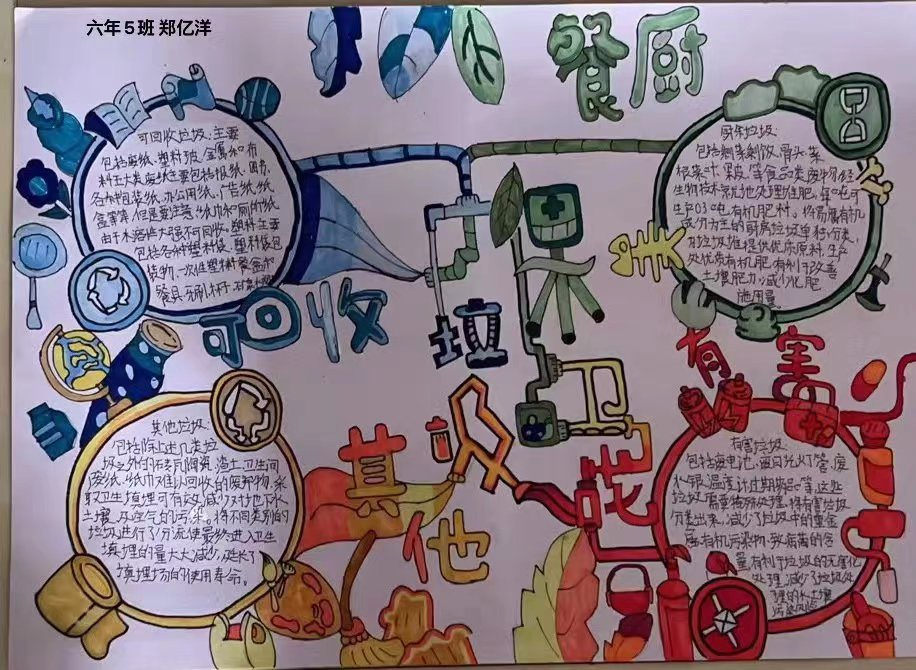 六年5班 郑亿洋
餐厨
可回收垃圾:主要
包括废纸、塑料、玻、金属和布
料五大类废纸主要包括报纸、图书、
各种包装纸、办公用纸、广告纸、纸
盒等等,但是要注意、纸巾和厕所纸
由于水溶性太强不可回收。塑料主要
包括各种塑料袋、塑料包
装物、一次性塑料餐盒和
餐具、牙刷、杯子、矿泉水
可回收
厨余垃圾:
包括剩菜剩饭、骨头、菜
根菜叶、果皮、等食品类废物经
生物技术就地处理堆肥,每吨可
生产0.3吨有机肥料。将易腐有机
成分为主的厨房垃圾单独分类,
为垃圾堆提供优质原料,生产
处优质有机肥,有利于改善
土壤肥力,减少化肥
施用量
垃圾
分类
有害
其他垃圾:
包括除上述几类垃
圾之外的砖瓦陶瓷、渣土、卫生间
废纸、纸巾难以回收的废弃物,采
取卫生填埋可有效减少对地下水、
土壤及空气的污染。将不同类别的
垃圾进行了分流使最终进入卫生
填埋的量大大减少,延长了
填埋场的使用寿命。
其他
有害垃圾:
包括废电池、废日光灯管、废
水银温度计过期药品等,这些
垃圾需要特殊处理,将有害垃圾
分类出来,减少了垃圾中的重金
属、有机污染物、致病菌的含
量,有利于垃圾的无害化
处理,减少了垃圾处
理的水土壤
污染风险